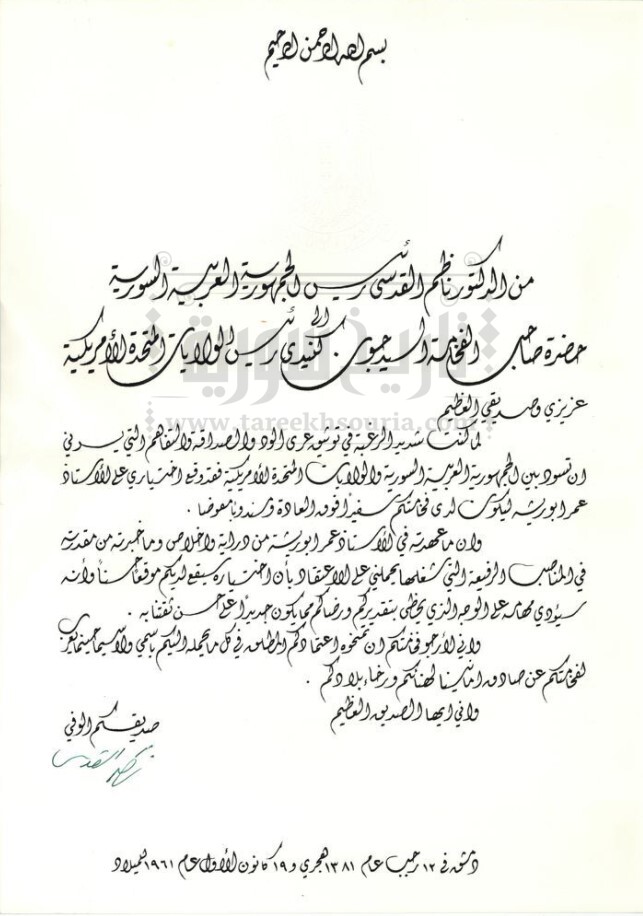 بسم الله الرحمن الرحيم
من الدكتور ناظم القدسي رئيس الجمهورية العربية السورية
الى
حضرة صاحب الفخامة السيد جون . ف . كنيدي رئيس الولايات المتحدة الأمريكية
عزيزي وصديقي العظيم
لما كنت شديد الرغبة في توثيق عرى الود والصداقة والتفاهم التي يسرني
ان تسود بين الجمهورية العربية السورية والولايات المتحدة الأمريكية فقد وقع اختياري على الأستاذ
عمر ابو ريشه ليكون لدى فخامتكم سفيرا فوق العادة ومندوبا مفوضا .
وان ما عهدته في الأستاذ عمر ابو ريشة من دراية واخلاص وما خبرته من مقدرته
في المناصب الرفيعة التي شغلها يحملني على الاعتقاد بأن اختياره سيقع لديكم موقعا حسنا وأنه
سيؤدي مهامه على الوجه الذي يحظى بتقديركم ورضاكم مما يكون جديرا على حسن ثقتنا به .
واني لأرجو فخامتكم ان تمنحوه اعتمادكم المطلق في كل ما يحمله اليكم باسمي ولا سيما حينما يعرب
لفخامتكم عن صادق امانينا لهنائكم ورخاء بلادكم .
واني ايها الصديق العظيم
صديقكم الوفي
دمشق في ١٢ رجب عام ١٣٨١ هجري و ١٩ كانون الأول عام ١٩٦١ للميلاد
تاريخ سورية
www.tareekhsouria.com